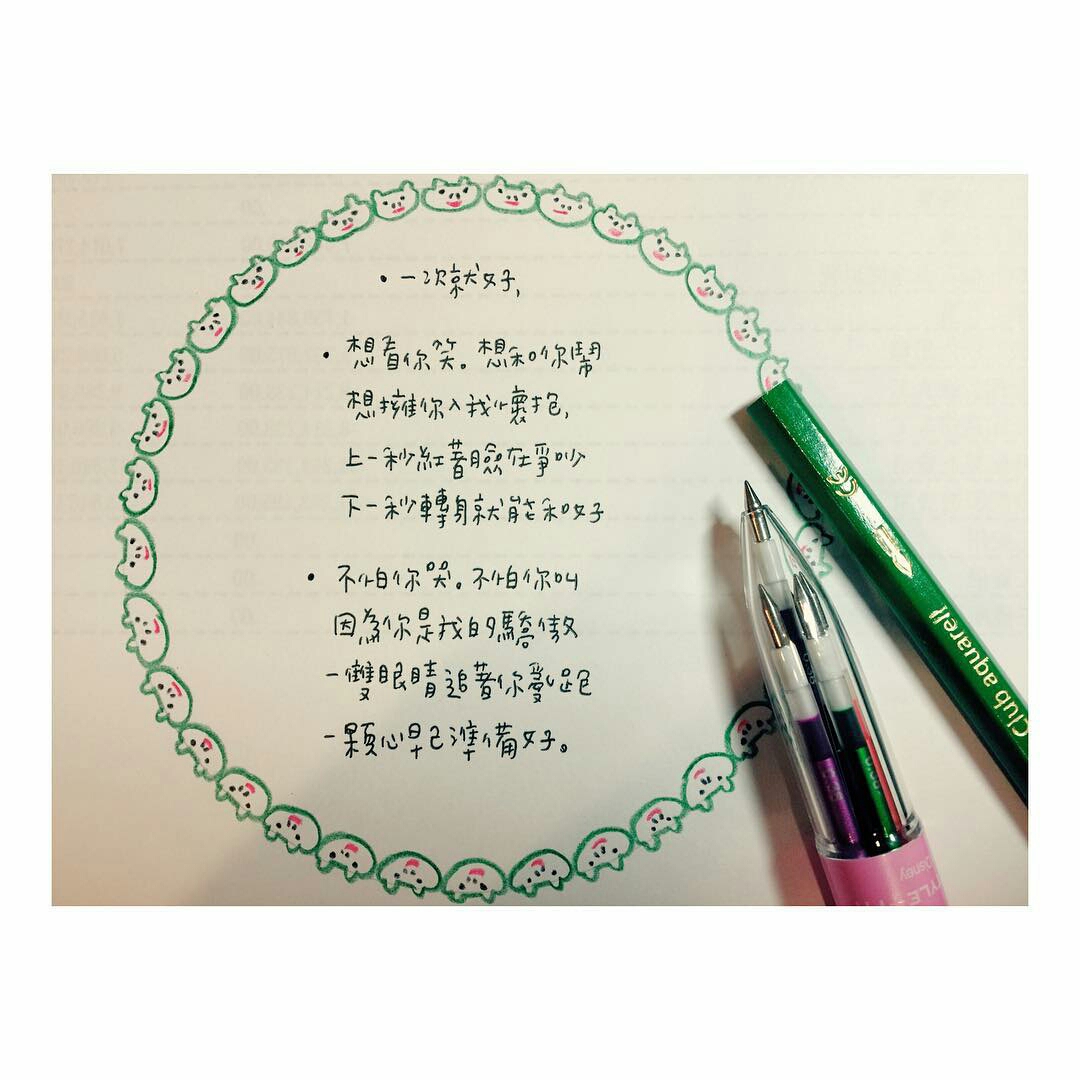 • 一次就好,
• 想看你笑。想和你鬧
想擁你入我懷抱,
上一秒紅著臉在爭吵
下一秒轉身就能和好
• 不怕你哭。不怕你叫
因為你是我的驕傲
一雙眼睛追著你亂跑
一顆心早已準備好。
Club aquarell
Disney